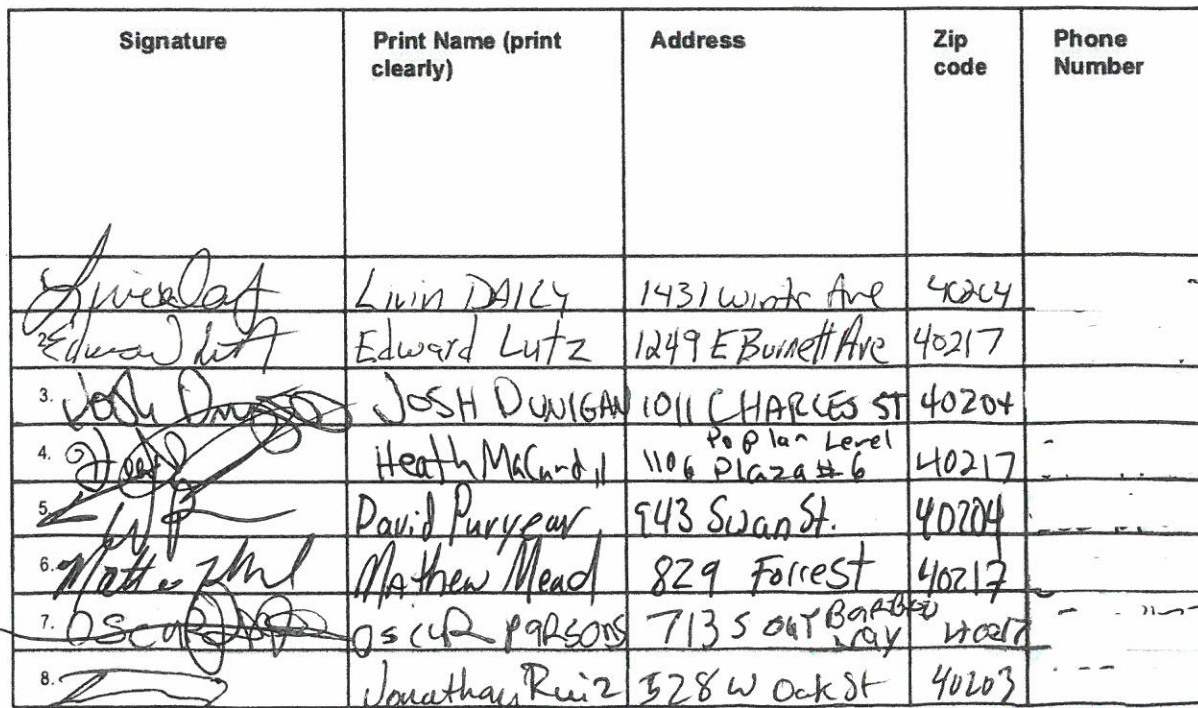 Signature Print Name (print clearly) Address Zip code Phone Number
Livin DAILY 1431 Ave 40204
2. Edward Lutz 1249 E Burnett Ave 40217
3. Josh JOSH DUNIGAN 1011 CHARLES ST 40204
4. Heath 1106 Poplar Level Plaza #6 40217
5. David Puryear 943 Swan St. 40204
6. Mathew Mead 829 Forrest 40217
7. Oscar OSCUR PARSONS 713 40217
8. Jonathan Ruiz 528 W Oak St 40203